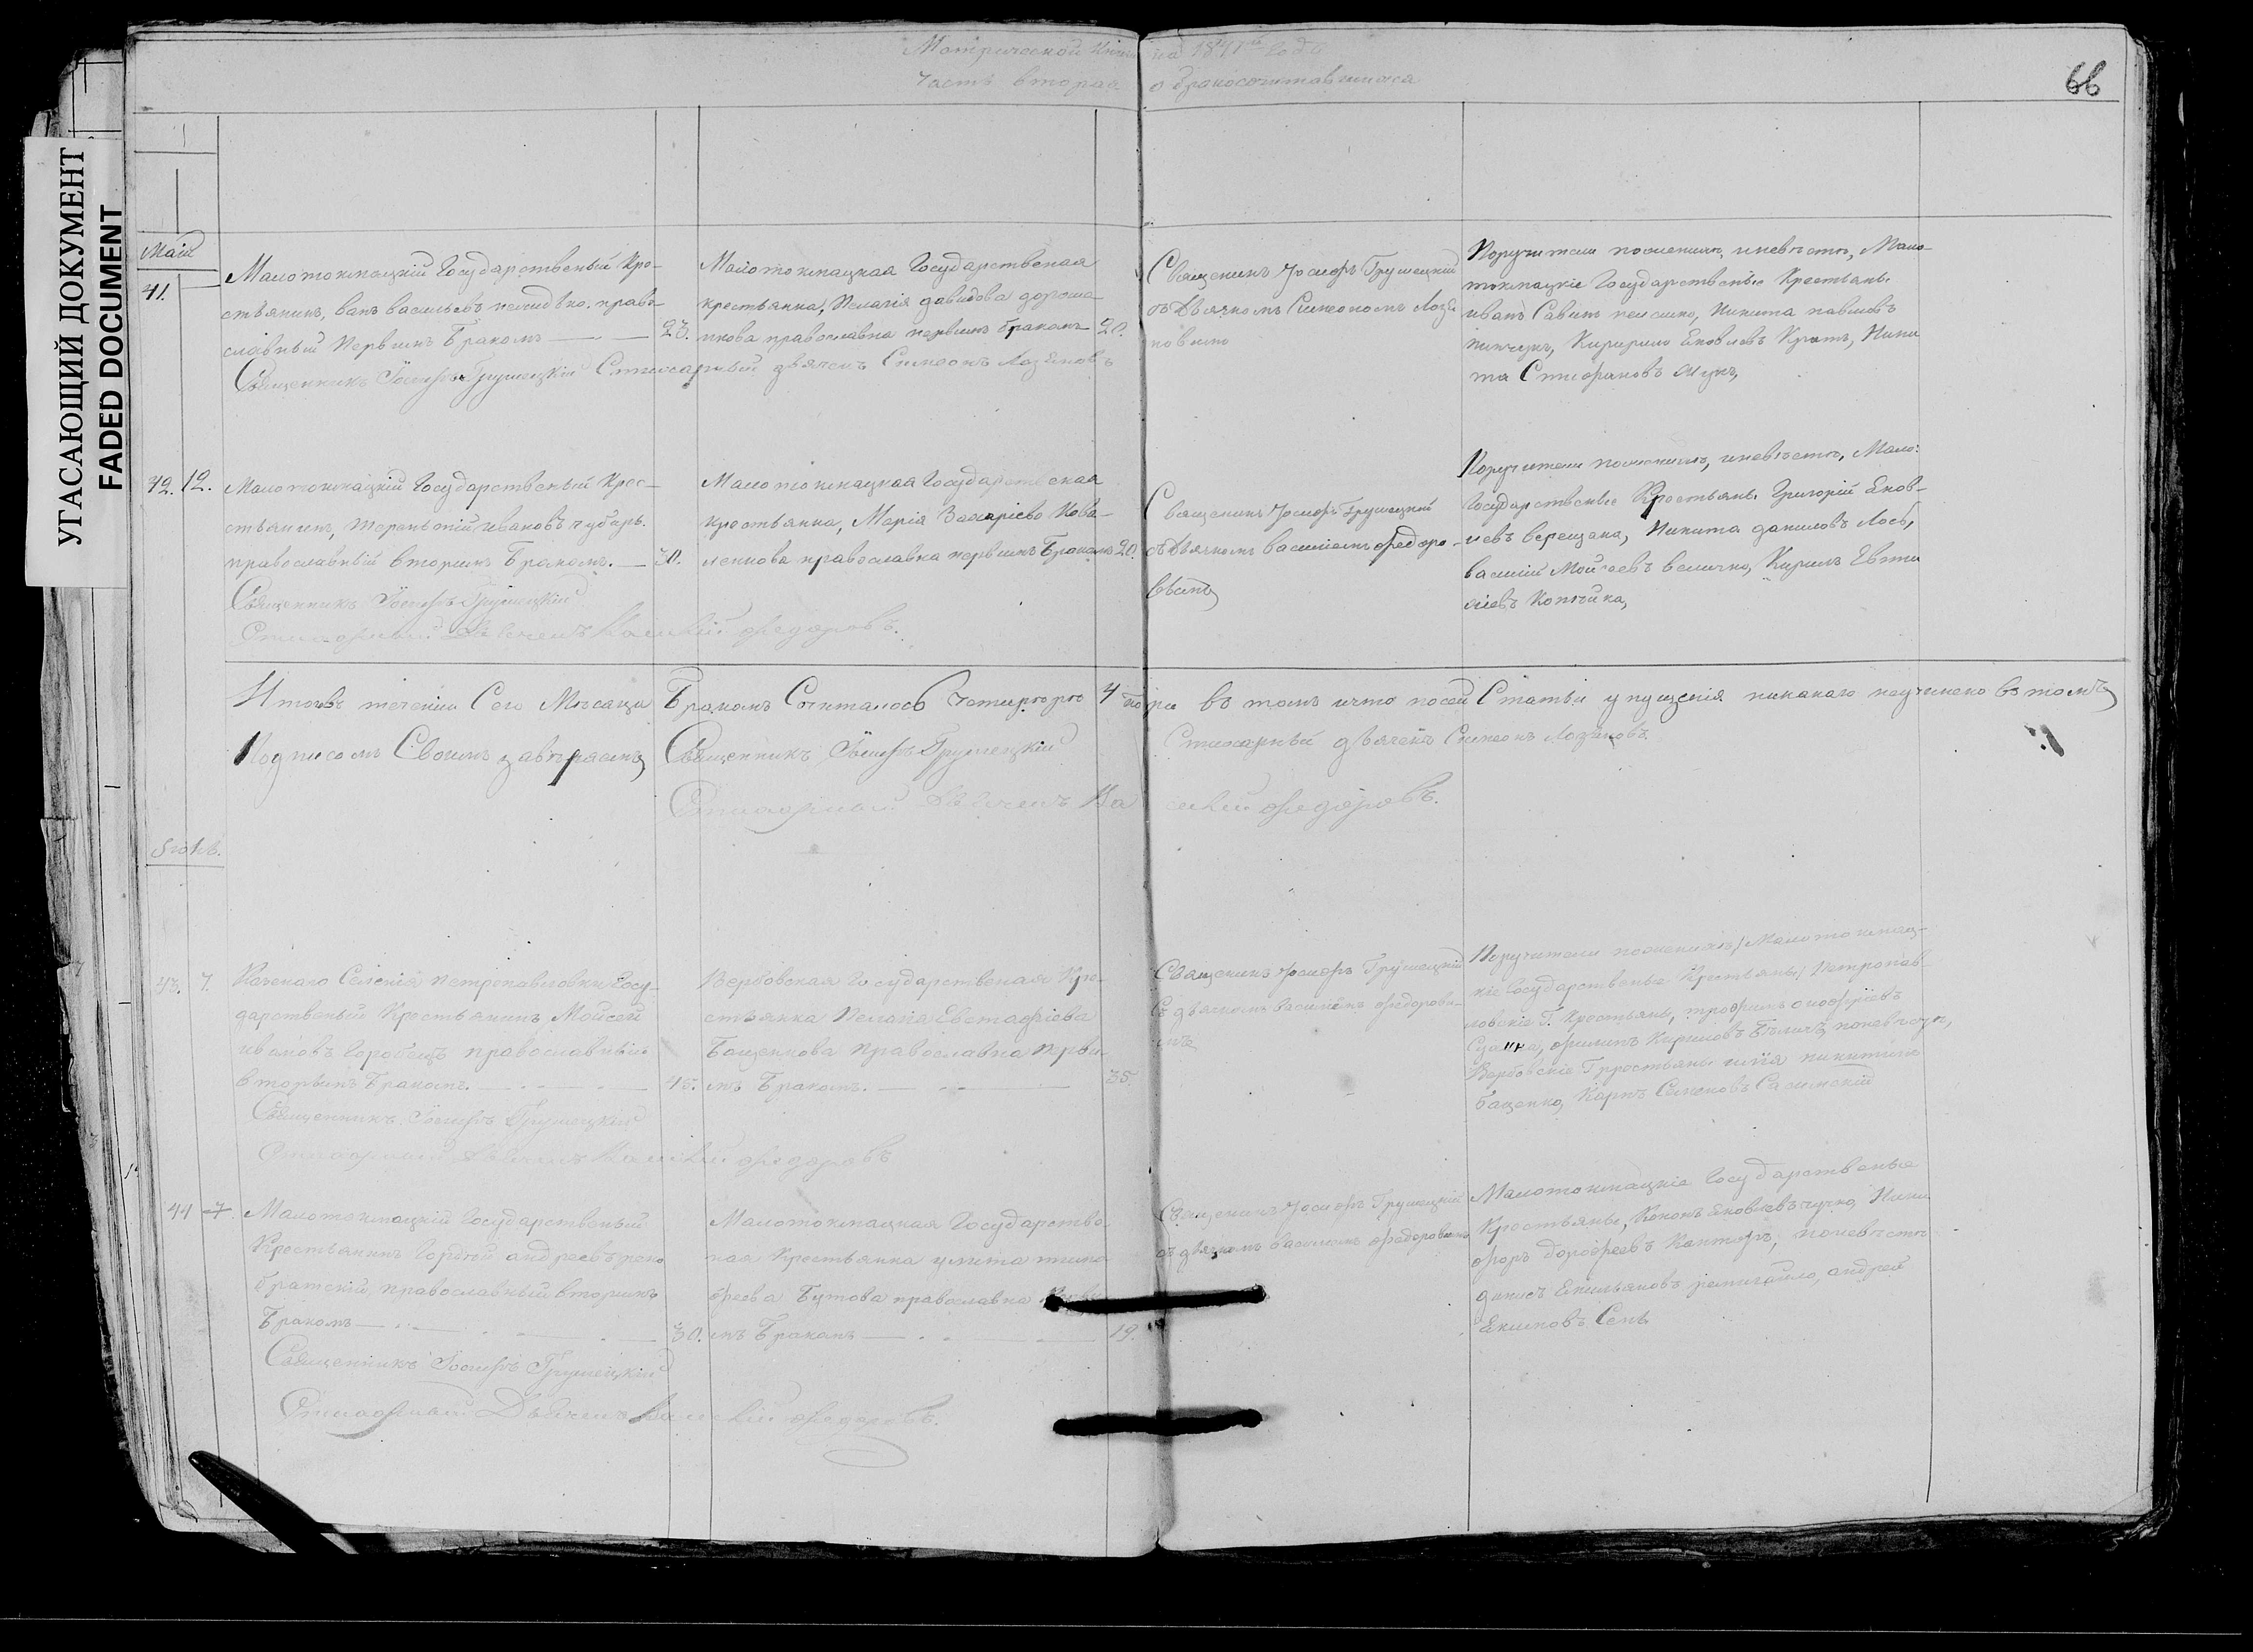 Метрической Книги на 1841й годъ
Часть вторая о бракосочетавшихся
66
УГАСАЮЩИЙ ДОКУМЕНТ
FADED DOCUMENT
Май
41.
Малотокмацкій Государственый Кре-
стьянинъ, васильевъ право
славный Первымъ Бракомъ
23.
Малотокмацкая Государственая
крестьянка, Пелагія давидова дороше
нкова православна первымъ бракомъ
20.
Священикъ Іосифъ Грушецкій
съ Дьячкомъ Симеономъ
Поручители поженихѣ, иневѣсте, Мало-
токмацкіе Государственіе Крестьяне
иванъ Савинъ Никита павловъ
Кирило Яковлевъ Кратъ, Ники
та Стефановъ
Священникъ Іосифъ Грушецкій Стихарный дьячекъ Симеонъ Лозановъ
42. 12.
Малотокмацкій Государственый Крес-
стьянинъ, терентій ивановъ чубарь.
православный вторымъ Бракомъ.
30.
Малотокмацкая Государственая
крестьянка, Марія Захаріева Кова-
ленкова православна первымъ Бракомъ
20.
Священикъ Іосифъ Грушецкій
съ Дьячкомъ василіемъ федоро-
вымъ
Поручители поженихѣ, иневѣсте, Мало:
Государственіе Крестьяне Григорій Яков-
левъ верещака, Никита даниловъ Лось,
василій Мойсеевъ величко, Кирилъ Евти
хіевъ Копѣйка,
Священникъ Іосифъ Грушецкій
Стихарный Дьячекъ Василій федоровъ.
Итого въ теченіи Сего Мѣсяца Бракомъ Сочиталось Четыре 4 пари въ томъ ичто посей Статьи упущенія никакаго неучинено втомъ
Подписомъ Своимъ завѣряемъ Священникъ Іосифъ Грушецкій
Стихарный дьячекъ Симеонъ Лозановъ
Стихарный Дьячекъ Василій федоровъ.
Іюнь.
43. 7.
Казенаго Селенія петропавловки Госу-
дарственый Крестьянинъ Мойсей
ивановъ Горобецъ православный
вторымъ Бракомъ.
45.
Вербовская Государственая Кре-
стьянка Пелагія Евстафіева
Баценкова Православна Первы
мъ Бракомъ.
35.
Священикъ Іосифъ Грушецкій
Съ дьячкомъ василіемъ федоровы-
мъ
Поручители поженихѣ Малотокмац-
кіе Государственые Крестьяне Петропав
ловскіе Г. Крестьяне, трофимъ
филипъ Кириловъ Бѣличъ поневѣсте,
Вербовскіе Г крестьяне илія никитинъ
баценко, Карпъ Симеоновъ
Священникъ Іосифъ Грушецкій
Стихарный Дьячекъ Василій федоровъ
44 7.
Малотокмацкій Государственый
Крестьянинъ Гордѣй андреевъ
православный вторымъ
Бракомъ
30.
Малотокмацкая Государстве
ная Крестьянка улита тимо
феева Бутова православна Первы
мъ Бракомъ
19.
Священикъ Іосифъ Грушецкій
съ дьячкомъ василіемъ федоровымъ
Малотокмацкіе Государственые
Крестьяне, Кононъ Яковлевъ Ники
форъ дорофеевъ поневѣсте
денисъ Емельяновъ андрей
Якимовъ
Священникъ Іосифъ Грушецкій
Стихарный Дьячекъ Василій федоровъ.